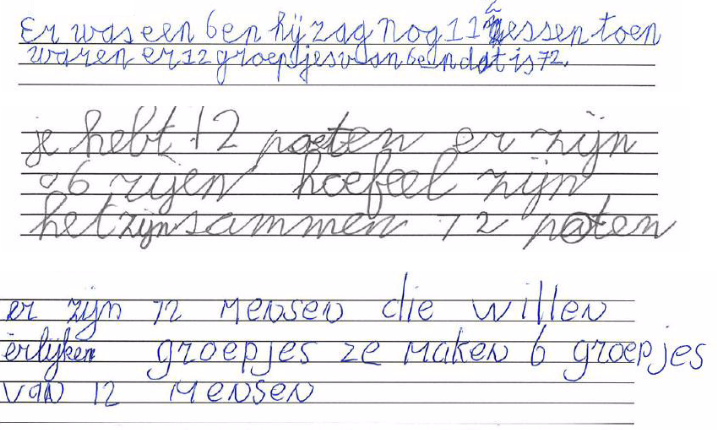 Er was een 6 en hij zag nog 11 zessen toen
waren er 12 groepjes van 6 en dat is 72.
je hebt 12 poten er zijn
op 6 rijen hoefeel zijn
het zijn sammen 72 poten
er zijn 72 mensen die willen
eerlijken groepjes ze maken 6 groepjes
van 12 mensen